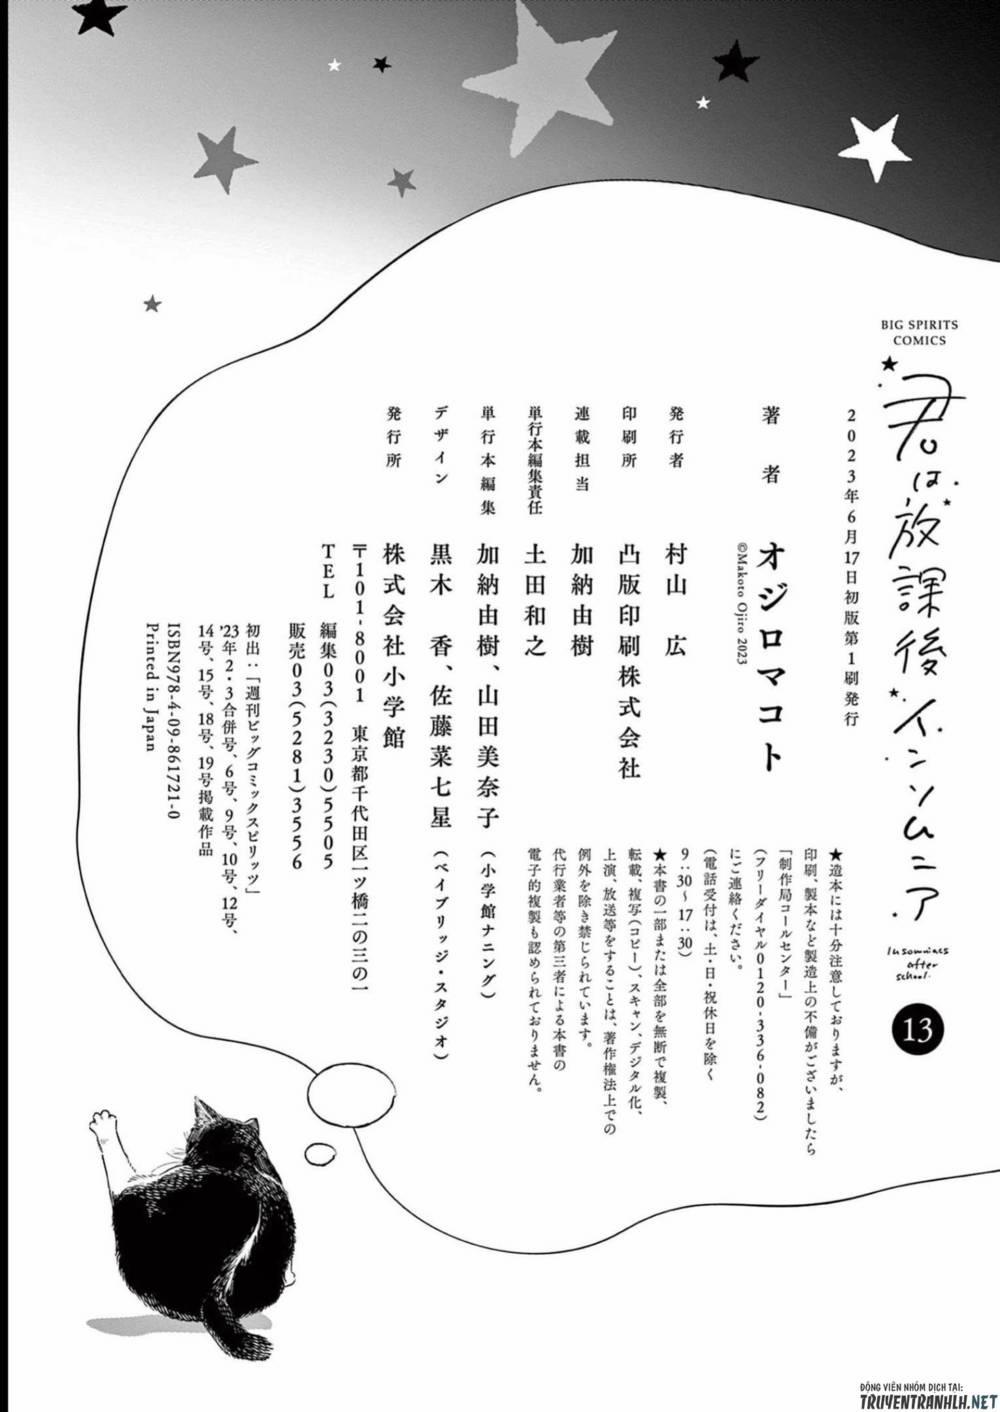 BIG SPIRITS
COMICS
君は放課後インソムニア
Insomniacs
after
school.
13
2023年6月17日初版第1刷発行
著者
オジロマコト
©Makoto Ojiro 2023
発行者
村山 広
印刷所
凸版印刷株式会社
連載担当
加納由樹
単行本編集責任
土田和之
単行本編集
加納由樹、山田美奈子(小学館ナニング)
デザイン
黒木 香、佐藤菜七星(ベイブリッジ・スタジオ)
発行所
株式会社小学館
〒101-8001 東京都千代田区一ツ橋二の三の一
TEL 編集03(3230)5505
販売03(5281)3556
★造本には十分注意しておりますが、
印刷、製本など製造上の不備がございましたら
「制作局コールセンター」
(フリーダイヤル0120-336-082)
にご連絡ください。
(電話受付は、土・日・祝休日を除く
9:30〜17:30)
★本書の一部または全部を無断で複製、
転載、複写(コピー)、スキャン、デジタル化、
上演、放送等をすることは、著作権法上での
例外を除き禁じられています。
代行業者等の第三者による本書の
電子的複製も認められておりません。
初出:「週刊ビッグコミックスピリッツ」
'23年2・3合併号、6号、9号、10号、12号、
14号、15号、18号、19号掲載作品
ISBN978-4-09-861721-0
Printed in Japan
ĐỘNG VIÊN NHÓM DỊCH TẠI:
TRUYENTRANHLH.NET